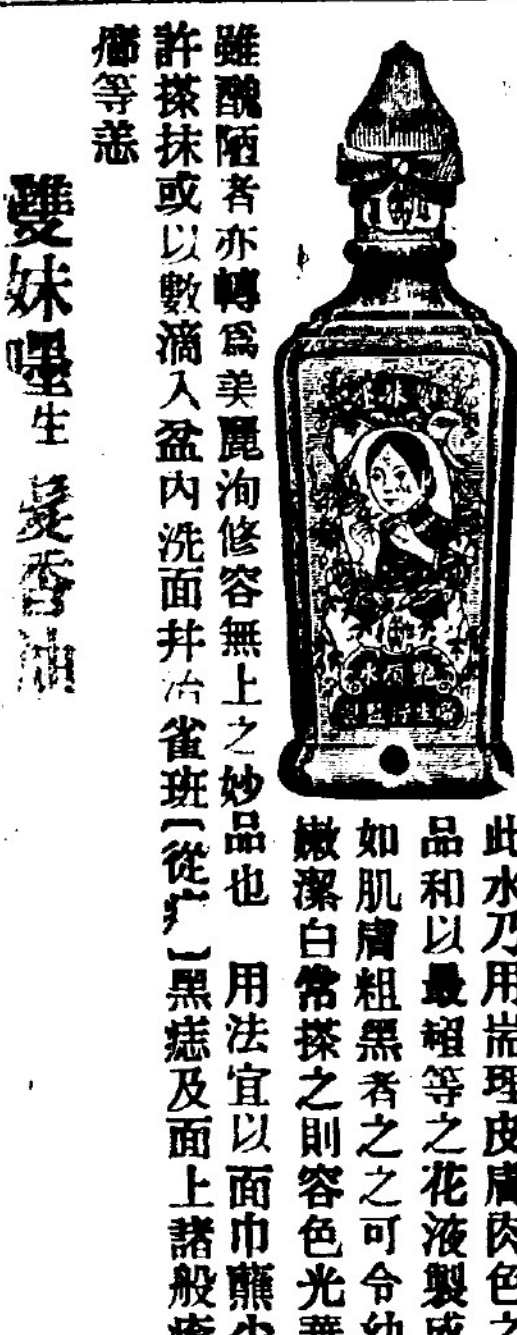 此水乃用耑理皮膚肉色之
品和以最超等之花液製成
如肌膚粗黑者之之可令幼
嫩潔白常搽之則容色光華
雖醜陋者亦轉爲美麗洵修容無上之妙品也　用法宜以面巾蘸少
許搽抹或以數滴入盆內洗面幷冶雀班【從疒】黑痣及面上諸般
瘡等恙
雙妹嚜生髮香
艷顏水